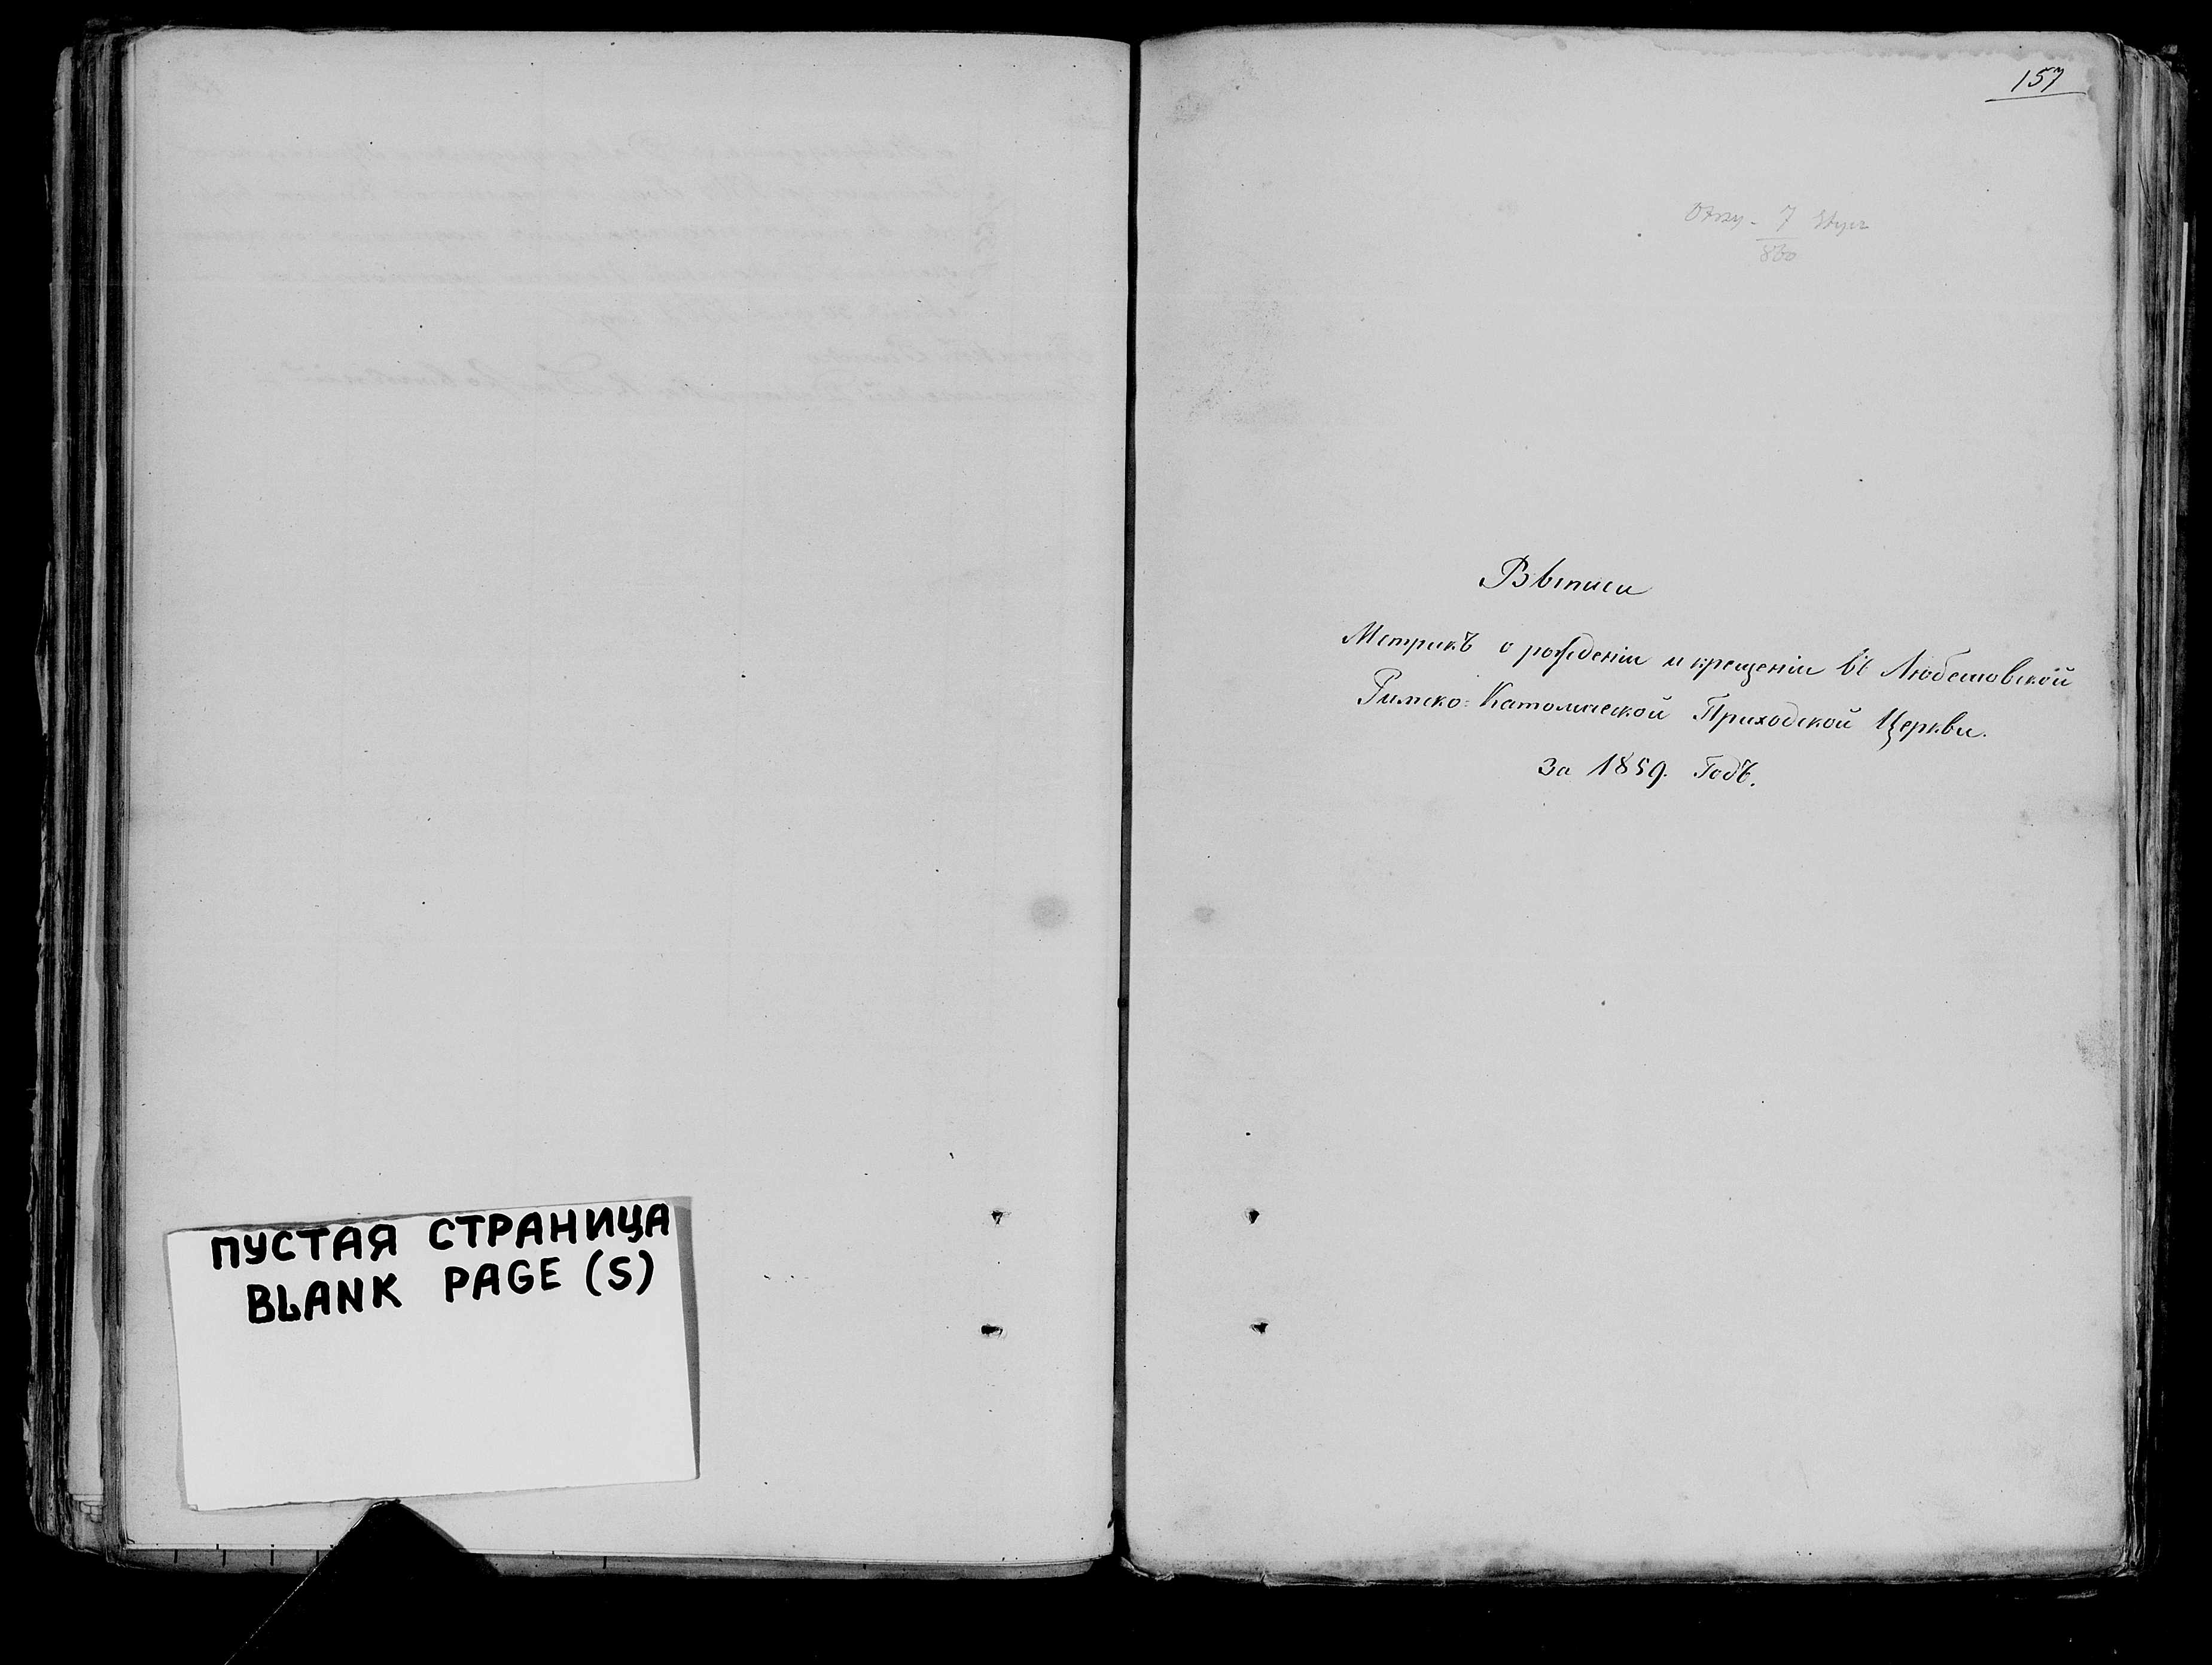 ПУСТАЯ СТРАНИЦА
BLANK PAGE (S)
157
7
860
Выписи
Метрикъ о рожденіи и крещеніи въ Любешовской
Римско-Католической Приходской Церкви.
За 1859. Годъ.